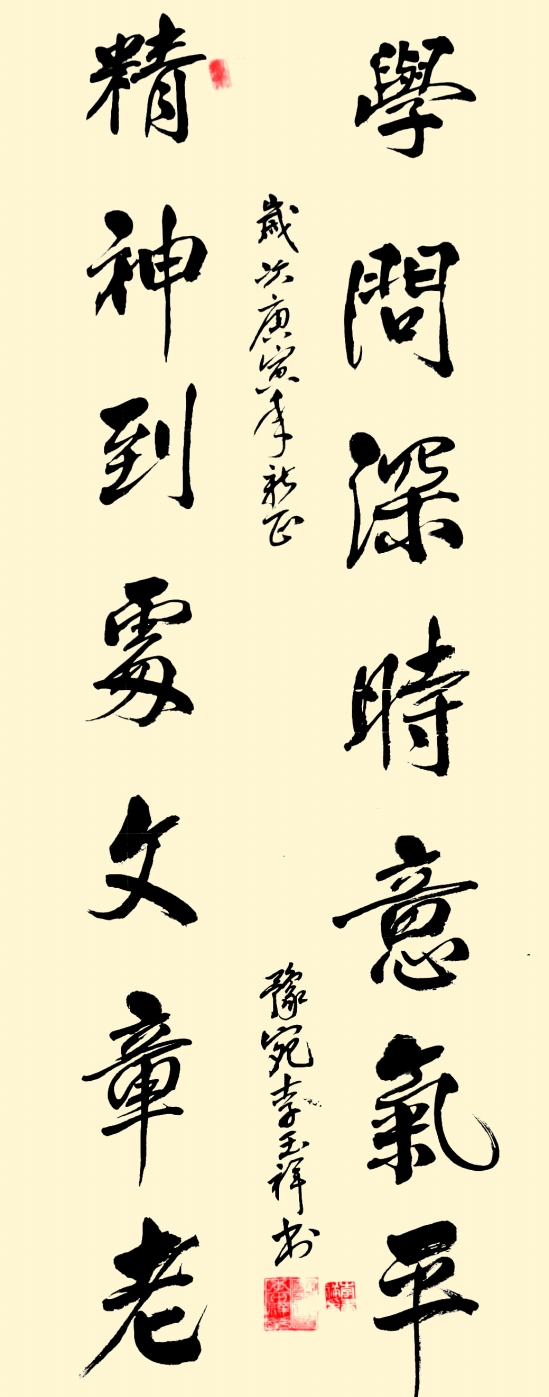 學問深時意氣平
歲次庚寅年新正
豫宛李玉祥书
精神到處文章老